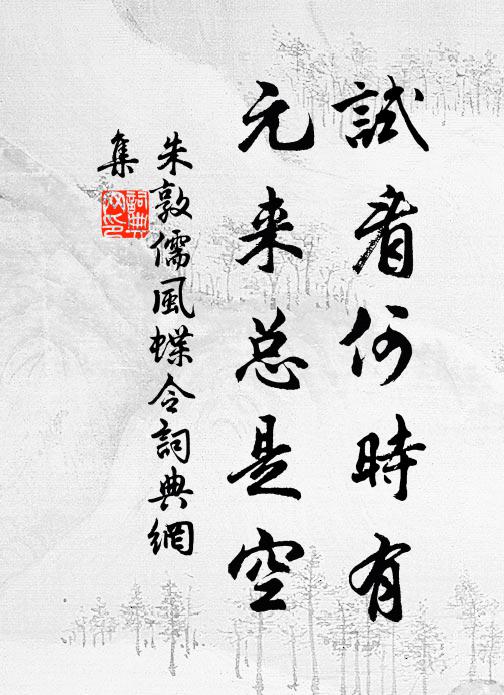 試看何時有
元来总是空
朱敦儒風蝶令詞典網
集
詞典
网印